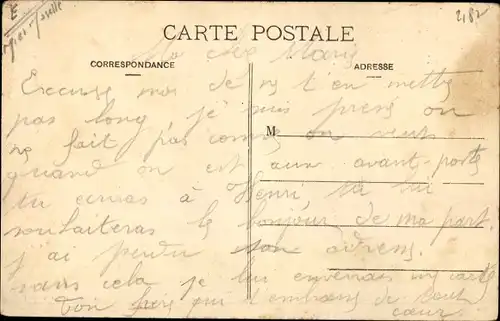 2182
CARTE POSTALE
CORRESPONDANCE
ADRESSE
Ma chère Marie
Excuse moi de ne t'en mettre
pas long je suis pressé on
M
ne fait pas comme on veut
quand on est aux avant-postes
tu écriras à Henri, tu lui
souhaiteras le bonjour de ma part.
j'ai perdu son adress.
sans cela je lui enverrais une carte
Ton frère qui t'embrasse de tout
cœur